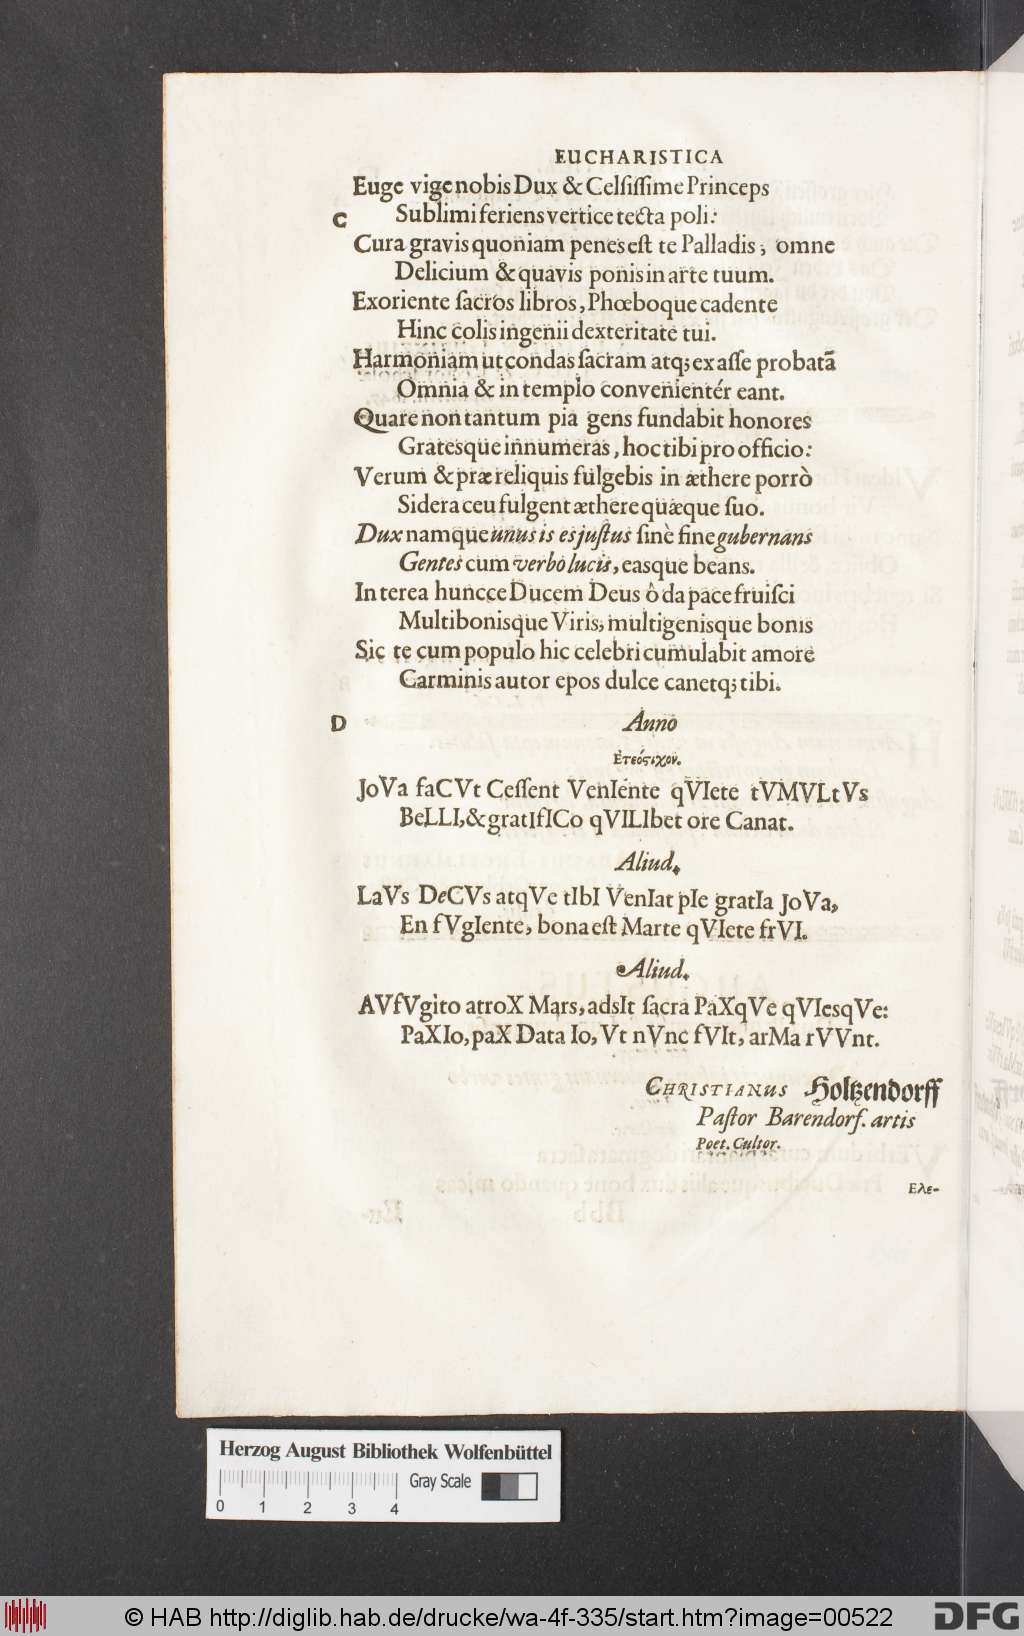 EUCHARISTICA
Euge vige nobis Dux & Celſiſſime Princeps
C Sublimi feriens vertice tecta poli:
Cura gravis quoniam penes eſt te Palladis, omne
Delicium & quavis ponis in arte tuum.
Exoriente ſacros libros, Phœboque cadente
Hinc colis ingenii dexteritate tui.
Harmoniam ut condas ſacram atq; ex aſſe probatã
Omnia & in templo convenientér eant.
Quare non tantum pia gens fundabit honores
Gratesque innumeras, hoc tibi pro officio:
Verum & præ reliquis fulgebis in æthere porrò
Sidera ceu fulgent æthere quæque ſuo.
Dux namque unus is es juſtus ſinè fine gubernans
Gentes cum verbo lucis, easque beans.
Interea huncce Ducem Deus ô da pace fruiſci
Multibonisque Viris, multigenisque bonis
Sic te cum populo hic celebri cumulabit amore
Carminis autor epos dulce canetq; tibi.
D Anno
Ετεόςιχον.
JoVa faCVt Ceſſent VenIente qVIete tVMVLtVs
BeLLI, & gratIfICo qVILIbet ore Canat.
Aliud.
LaVs DeCVs atqVe tIbI VenIat pIe gratIa JoVa,
En fVgIente, bona eſt Marte qVIete frVI.
Aliud.
AVfVgito atroX Mars, adsIt ſacra PaXqVe qVIesqVe:
PaX Io, paX Data Io, Vt nVnc fVIt, arMa rVVnt.
CHRISTIANUS Holtzendorff
Paſtor Barendorf. artis
Poet. Cultor.
Ελε-
Herzog August Bibliothek Wolfenbüttel
Gray Scale
0 1 2 3 4
© HAB http://diglib.hab.de/drucke/wa-4f-335/start.htm?image=00522
DFG